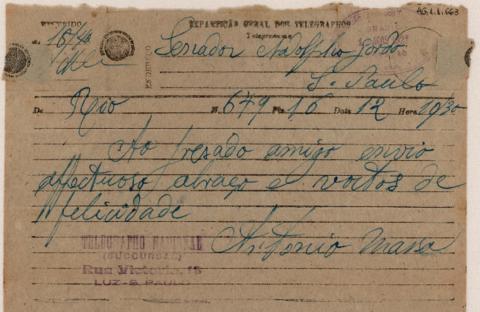 AG.1.1.663
RECEBIDO
REPARTIÇÃO GERAL DOS TELEGRAPHOS
Telegramma
ENDEREÇO
Senador Adolpho Gordo
S. Paulo
De Rio N. 649 Pls. 16 Data 12 Hora 1930
Ao presado amigo envio
affectuoso abraço e votos de
felicidade
Antonio Massa
TELEGRAPHO NACIONAL
(SUCCURSAL)
Rua Victoria, 15
LUZ-S. PAULO